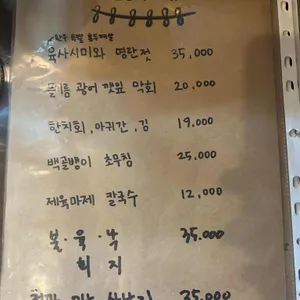 육사시미와 명란젓 35,000
광어 깻잎 막회 20,000
한치회, 아귀간, 김 19.000
백골뱅이 초무침 25,000
제육마제 칼국수 12,000
불·육·낙 35.000
희 지
35,000